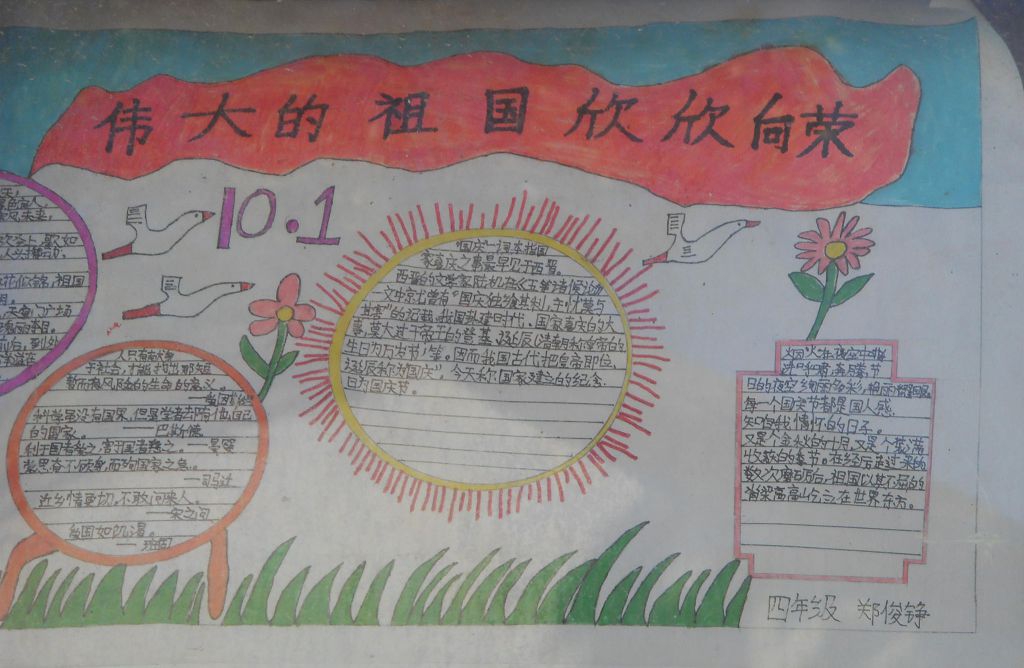 伟大的祖国欣欣向荣
10.1
人头攒动。
花似锦，祖国
天安门广场
人只有献身
于社会，才能找出那短
暂而有风险的生命的意义。
科学虽没有国界，但是学者却有他自己
的国家。 ——巴斯德
利于国者爱之，害于国者恶之。——晏婴
常思奋不顾身，而殉国家之急。
——司马迁
近乡情更切，不敢问来人。
——宋之问
爱国如饥渴。
——班固
"国庆"一词本指国
家喜庆之事最早见于西晋。
西晋的文学家陆机在《五等诸侯论》
一文中就曾有"国庆独飨其利，主忧莫与
其害"的记载，我国封建时代、国家喜庆的大
事，莫大过于帝王的登基、诞辰(清朝称皇帝的
生日为万岁节)等。因而我国古代把皇帝即位、
诞辰称为"国庆"，今天称国家建立的纪念
日为国庆节。
日的夜空绚丽多彩，
每一个国庆节都是国人感
知自我情怀的日子。
又是个金秋的十月，又是个装满
收获的季节。在经历走过来的
数次磨砺后，祖国以其不屈的
脊梁高高屹立在世界东方。
四年级 郑俊铮